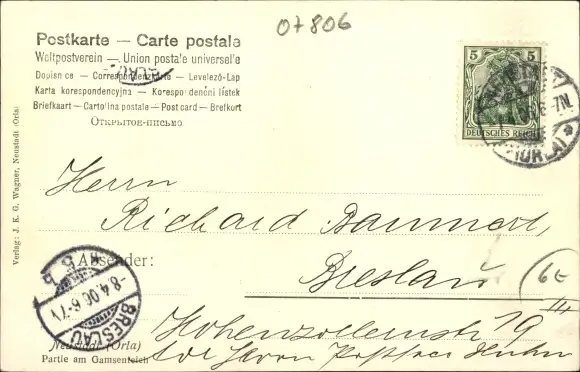 07806
Postkarte — Carte postale
Weltpostverein — Union postale universelle
Dopisnice — Correspondenzkarte — Levelező-Lap
Karta korespondencyjna — Korespondenční lístek
Briefkaart — Cartolina postale — Post card — Brefkort
Открытое-письмо
5 5
DEUTSCHES REICH
(ORLA)
Verlag: J. K. G. Wagner, Neustadt (Orla)
Herrn
Richard Bammert,
Absender:
Breslau
6E
BRESLAU
-8.4.06.6-7V
Hohenzollernstr 19
Neustadt (Orla)
Partie am Gamsenteich
Herrn